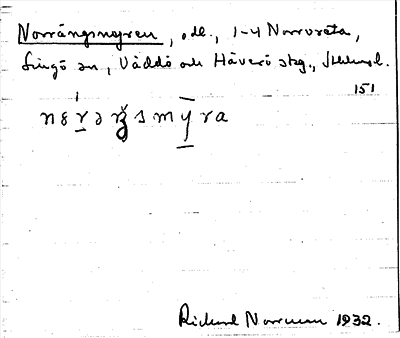 Norrängsmyren, odl., 1-4 Norrvreta,
Singö sn, Väddö och Häverö skg., Sthlms l.
151
Rickard Norrman 1932.